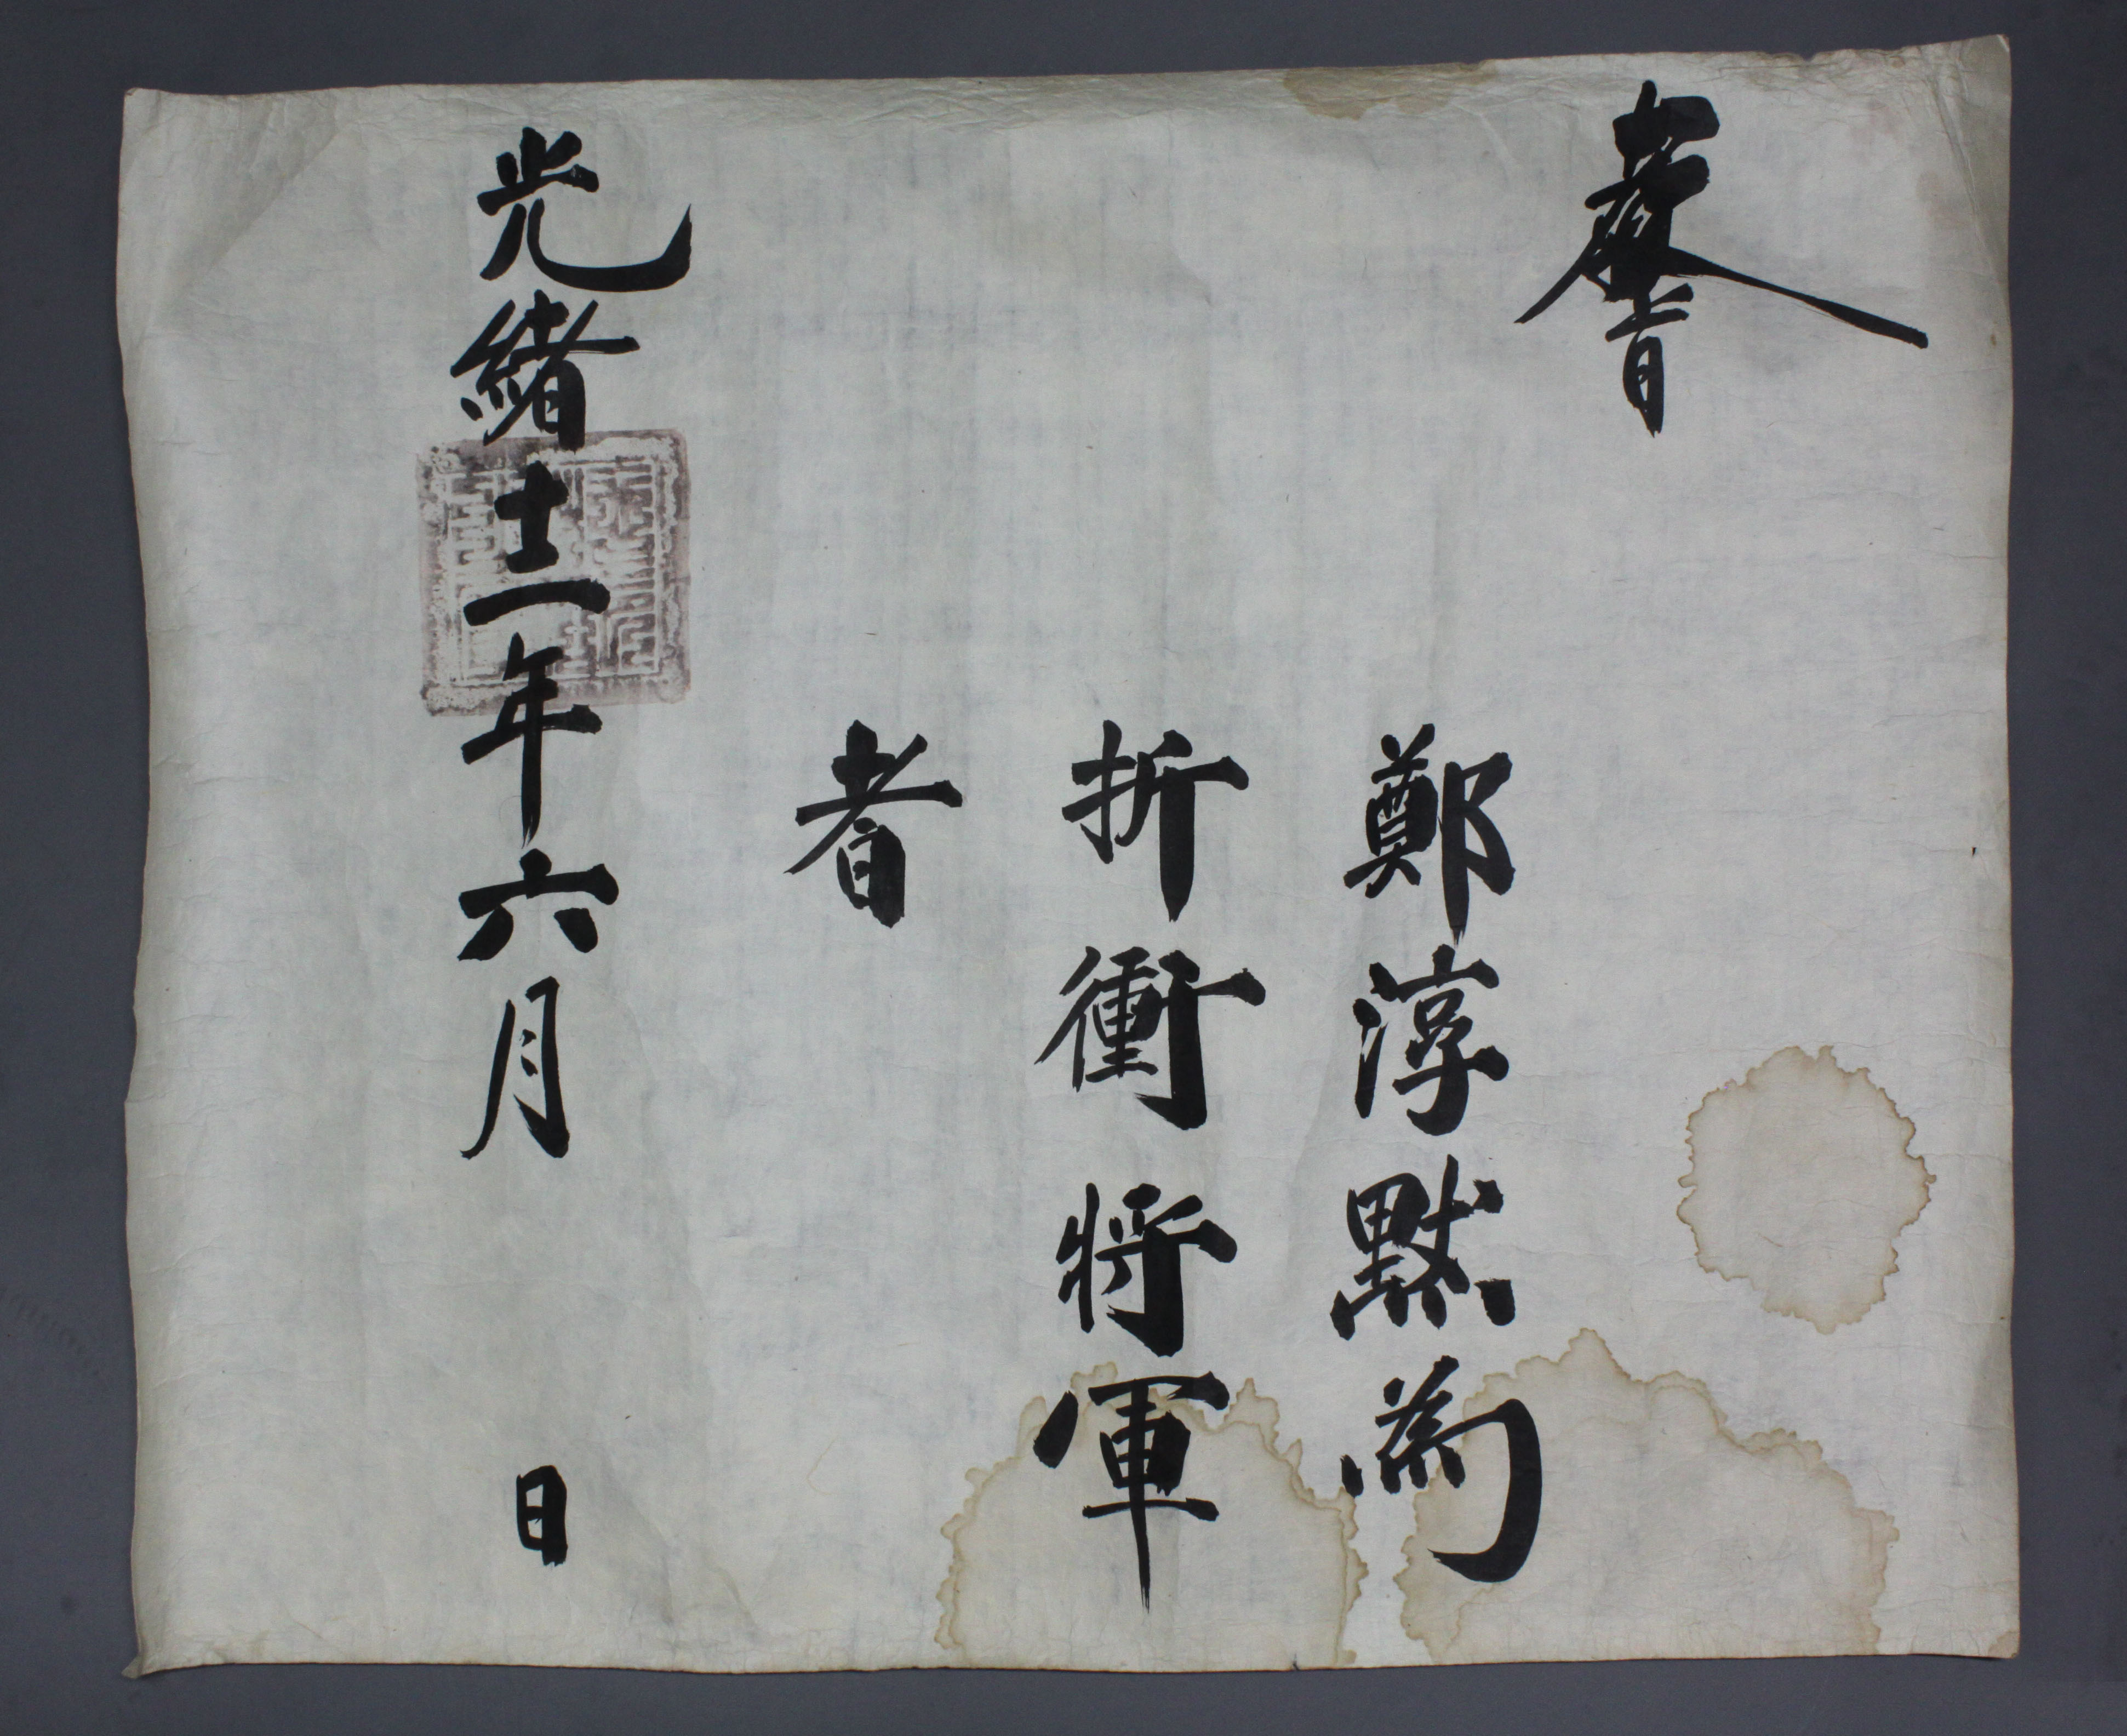 敎旨
鄭淳默為
折衝將軍
者
光緒十二年六月 日